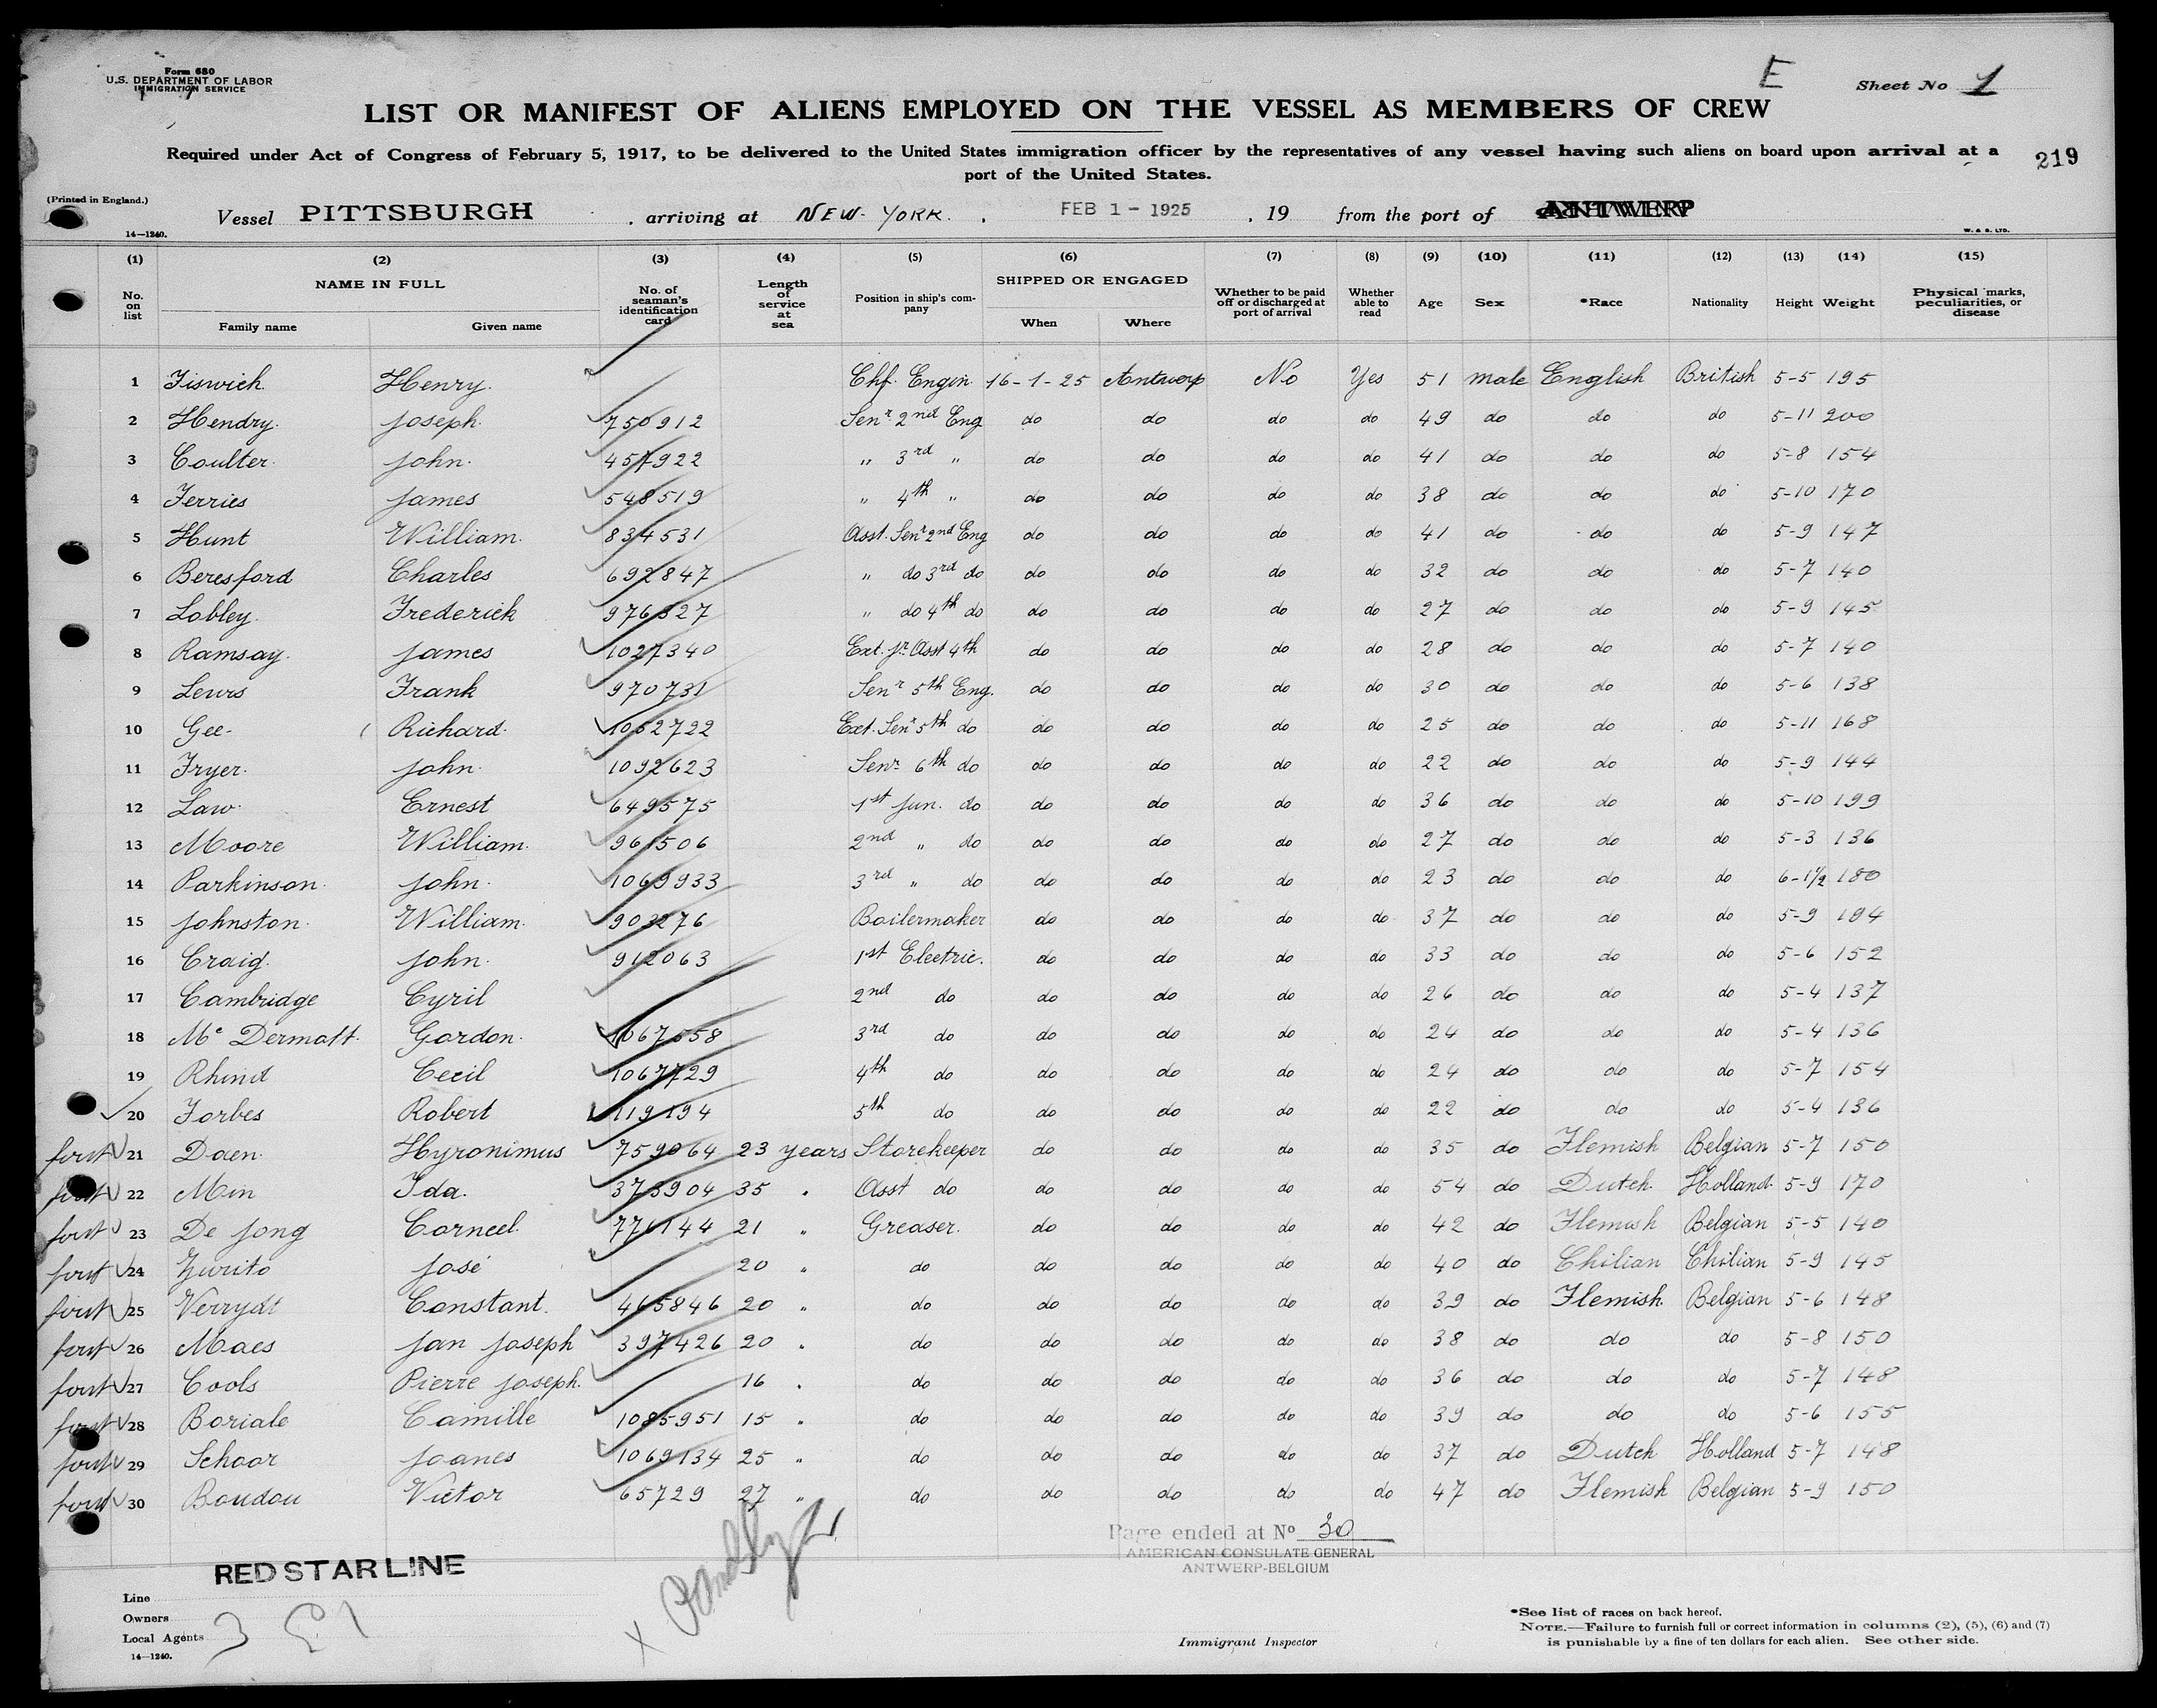 Form 680
U.S. DEPARTMENT OF LABOR
IMMIGRATION SERVICE
E
Sheet No 1
LIST OR MANIFEST OF ALIENS EMPLOYED ON THE VESSEL AS MEMBERS OF CREW
Required under Act of Congress of February 5, 1917, to be delivered to the United States immigration officer by the representatives of any vessel having such aliens on board upon arrival at a
port of the United States.
219
(Printed in England.)
Vessel PITTSBURGH , arriving at NEW YORK. , FEB 1 - 1925 , 19 from the port of ANTWERP
14—1240.
W. & S. LTD.
(1) (2) (3) (4) (5) (6) (7) (8) (9) (10) (11) (12) (13) (14) (15)
No. on list NAME IN FULL Family name Given name No. of seaman's identification card Length of service at sea Position in ship's company SHIPPED OR ENGAGED When Where Whether to be paid off or discharged at port of arrival Whether able to read Age Sex *Race Nationality Height Weight Physical marks, peculiarities, or disease
1 Fiswich Henry. Chf. Engin 16-1-25 Antwerp No Yes 51 male English British 5-5 195
2 Hendry. Joseph. 750912 Senr 2nd Eng do do do do 49 do do do 5-11 200
3 Coulter. John. 457922 " 3rd " do do do do 41 do do do 5-8 154
4 Ferries James 548519 " 4th " do do do do 38 do do do 5-10 170
5 Hunt William. 834531 Asst. Senr 2nd Eng do do do do 41 do do do 5-9 147
6 Beresford Charles 692847 " do 3rd do do do do do 32 do do do 5-7 140
7 Lobley. Frederick 976327 " do 4th do do do do do 27 do do do 5-9 145
8 Ramsay. James 1027340 Ext. Jr. Asst 4th do do do do 28 do do do 5-7 140
9 Lewis Frank 970731 Senr 5th Eng. do do do do 30 do do do 5-6 138
10 Gee- Richard. 1052722 Ext. Senr 5th do do do do do 25 do do do 5-11 168
11 Fryer. John. 1092623 Senr 6th do do do do do 22 do do do 5-9 144
12 Law. Ernest 649575 1st Jun. do do do do do 36 do do do 5-10 199
13 Moore William. 961506 2nd " do do do do do 27 do do do 5-3 136
14 Parkinson. John. 1069933 3rd " do do do do do 23 do do do 6-1½ 180
15 Johnston. William. 903276 Boilermaker do do do do 37 do do do 5-9 194
16 Craig. John. 912063 1st Electric. do do do do 33 do do do 5-6 152
17 Cambridge Cyril 2nd do do do do do 26 do do do 5-4 137
18 Mc Dermott. Gordon. 1067558 3rd do do do do do 24 do do do 5-4 136
19 Rhind Cecil 1067729 4th do do do do do 24 do do do 5-7 154
20 Forbes Robert 119194 5th do do do do do 22 do do do 5-4 136
21 Daen. Hyronimus 759064 23 years Storekeeper do do do do 35 do Flemish Belgian 5-7 150
22 Min Ida. 373904 35 " Asst do do do do do 54 do Dutch. Holland. 5-9 170
23 De Jong Corneel. 771144 21 " Greaser. do do do do 42 do Flemish Belgian 5-5 140
24 Zurito José 20 " do do do do do 40 do Chilian Chilian 5-9 145
25 Verrydt Constant. 465846 20 " do do do do do 39 do Flemish. Belgian 5-6 148
26 Maes Jan Joseph 397426 20 " do do do do do 38 do do do 5-8 150
27 Cools Pierre Joseph. 16 " do do do do do 36 do do do 5-7 148
28 Boriale Camille 1085951 15 " do do do do do 39 do do do 5-6 155
29 Schoor Joanes 1069134 25 " do do do do do 37 do Dutch Holland 5-7 148
30 Boudou Victor 65729 27 " do do do do do 47 do Flemish Belgian 5-9 150
Page ended at No 30
AMERICAN CONSULATE GENERAL
ANTWERP-BELGIUM
RED STAR LINE
Line
Owners
Local Agents
14—1240.
Immigrant Inspector
*See list of races on back hereof.
NOTE.—Failure to furnish full or correct information in columns (2), (5), (6) and (7)
is punishable by a fine of ten dollars for each alien. See other side.